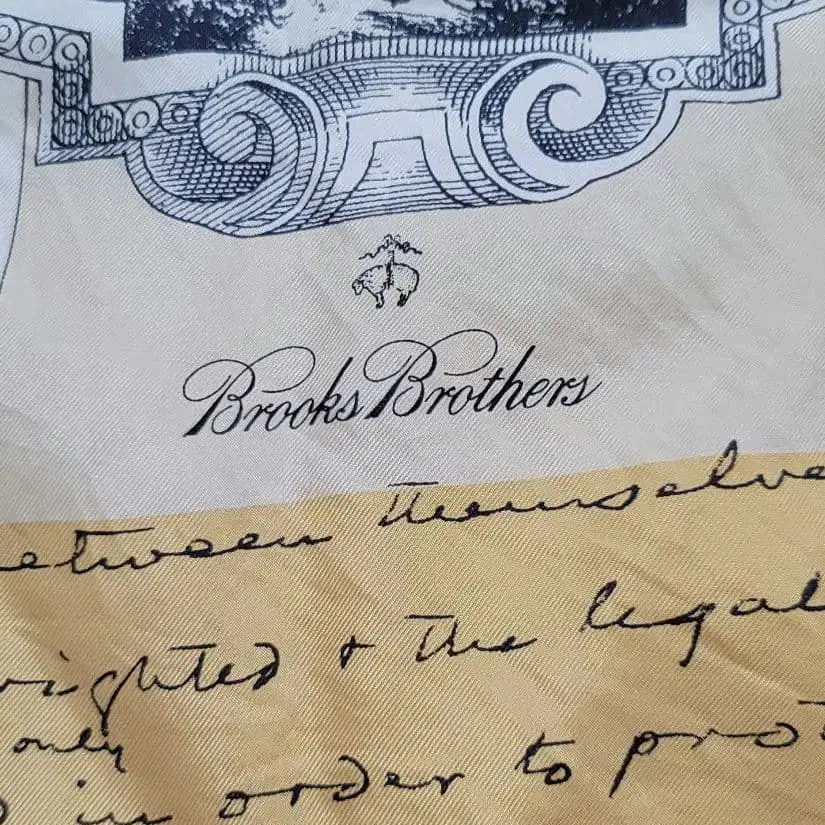 Brooks Brothers
etween themselve
righted + the legal
only
in order to prot